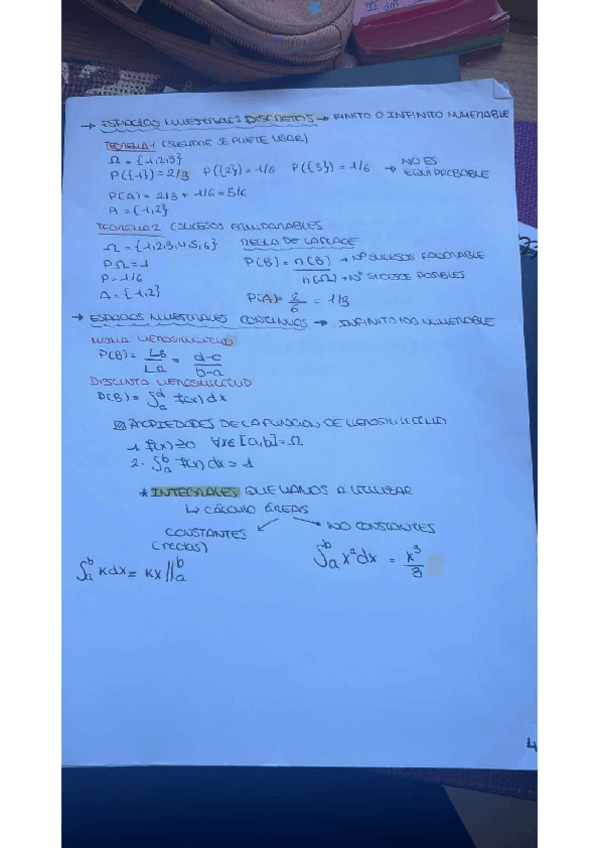 → ESPACIOS MUESTRALES DISCRETOS → FINITO O INFINITO NUMERABLE
TEOREMA 1 (SIEMPRE SE PUEDE USAR)
Ω = {1,2,3}
P({1}) = 2/3 P({2}) = 1/6 P({3}) = 1/6 → NO ES EQUIPROBABLE
P(A) = 2/3 + 1/6 = 5/6
A = {1,2}
TEOREMA 2 (SUCESOS EQUIPROBABLES
Ω = {1,2,3,4,5,6} REGLA DE LAPLACE
PΩ = 1 P(B) = n(B) → Nº SUCESOS FAVORABLE
P = 1/6 n(Ω) → Nº SUCESOS POSIBLES
A = {1,2} P(A) = 2/6 = 1/3
→ ESPACIOS MUESTRALES CONTINUOS → INFINITO NO NUMERABLE
MISMA VEROSIMILITUD
P(B) = LB/LΩ = d-c/b-a
DISTINTA VEROSIMILITUD
P(B) = ∫cd f(x) dx
PROPIEDADES DE LA FUNCION DE VEROSIMILITUD
1. f(x) ≥ 0 ∀x∈[a,b] = Ω
2. ∫ab f(x) dx = 1
* INTEGRALES QUE VAMOS A UTILIZAR
↳ CÁLCULO ÁREAS
CONSTANTES NO CONSTANTES
(rectas)
∫ab K dx = Kx//ab ∫ab x² dx = x³/3
4